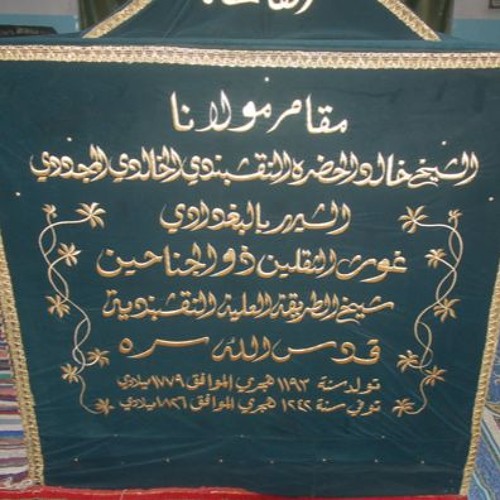 الفاتحة
مقام مولانا
الشيخ خالد الحضره النقشبندي الخالدي المجددي
الشهير بالبغدادي
غوث الثقلين ذو الجناحين
شيخ الطريقة العلية النقشبندية
قدس الله سره
تولد سنة ١١٩٣ هجري الموافق ١٧٧٩ ميلادي
توفي سنة ١٢٤٢ هجري الموافق ١٨٢٦ ميلادي